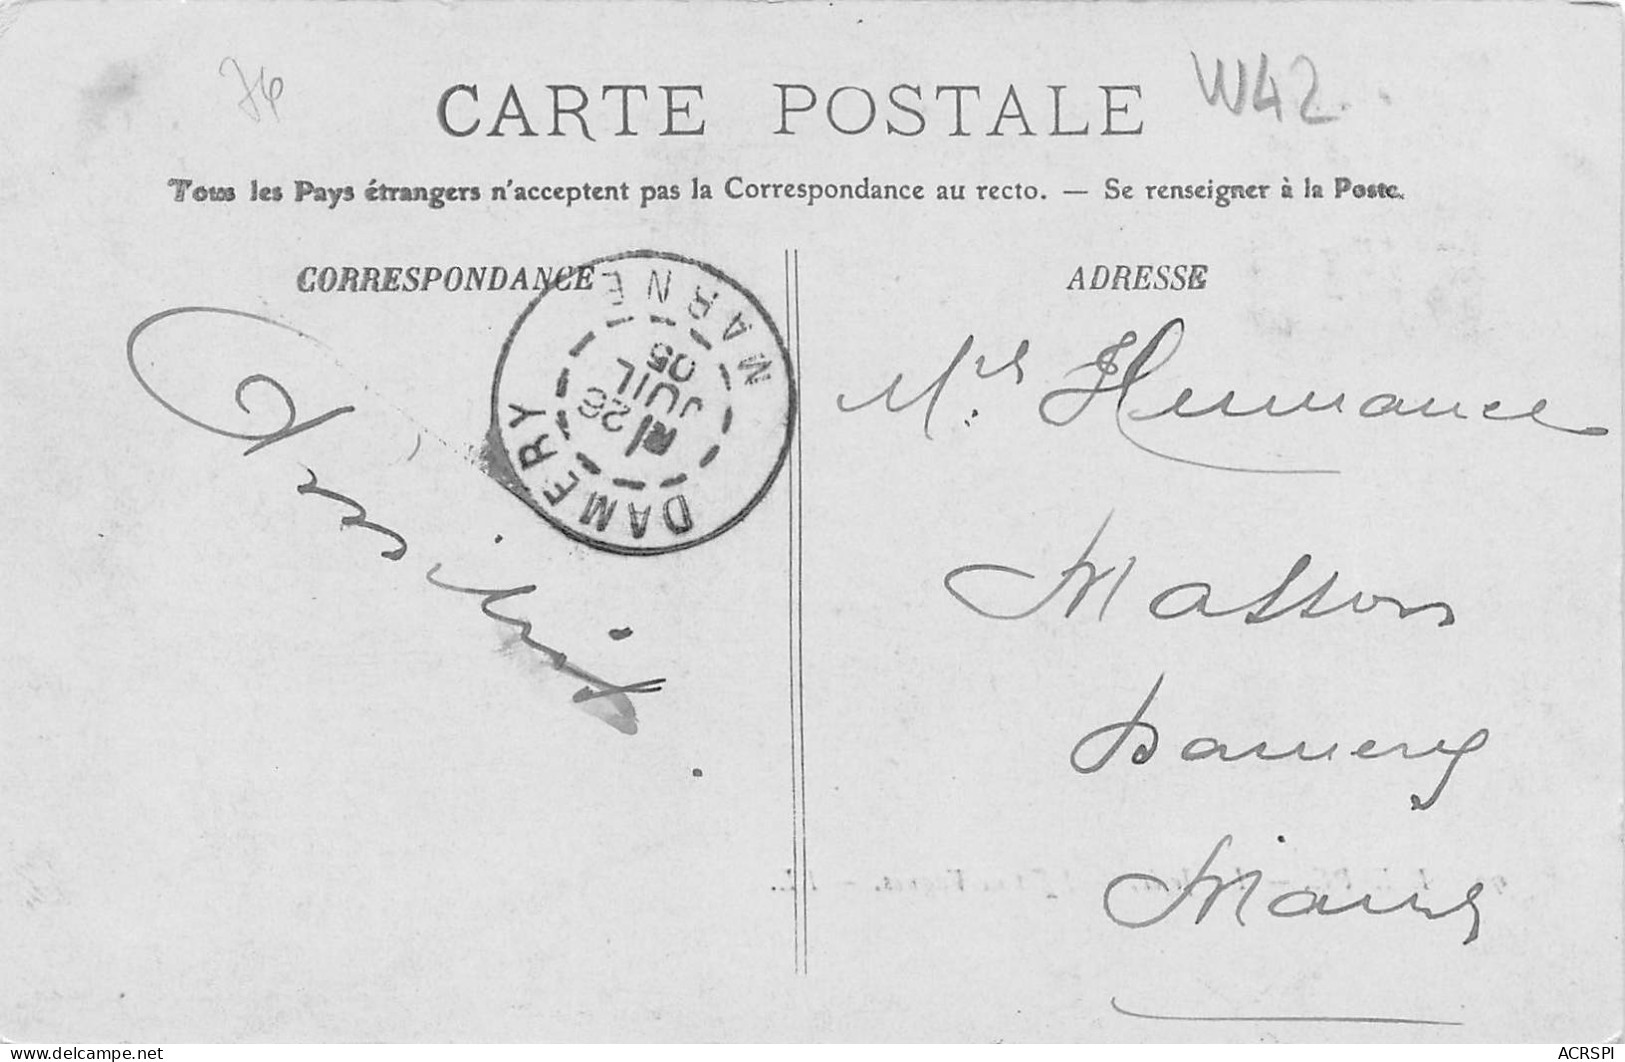 76
CARTE POSTALE
W42
Tous les Pays étrangers n'acceptent pas la Correspondance au recto. — Se renseigner à la Poste.
CORRESPONDANCE
DAMERY
26
JUIL
05
MARNE
ADRESSE
Hermance
Masson
Damery
Marne
delcampe.net
ACRSPI